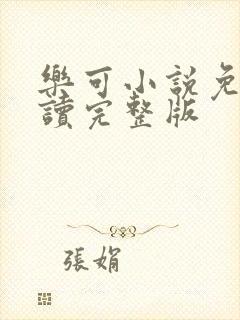 樂可小說免
讀完整版
張娟